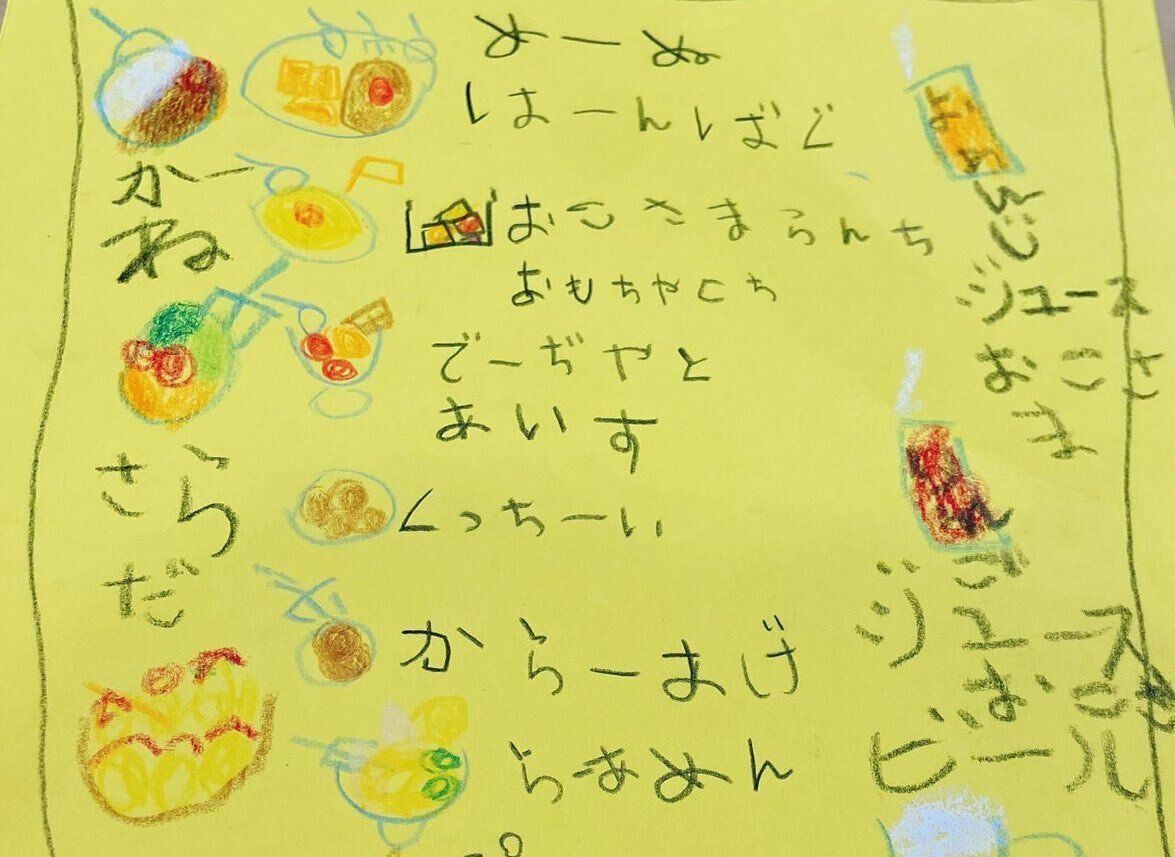 めーぬ
はーんばぐ
かー
ね
おこさまらんち
おもちやとち
でーぢやと
あいす
さら
だ
くっちーい
からーあげ
らーあめん
んじ
ジュース
おこさ
ま
んご
ジュース
おこさ
ビール